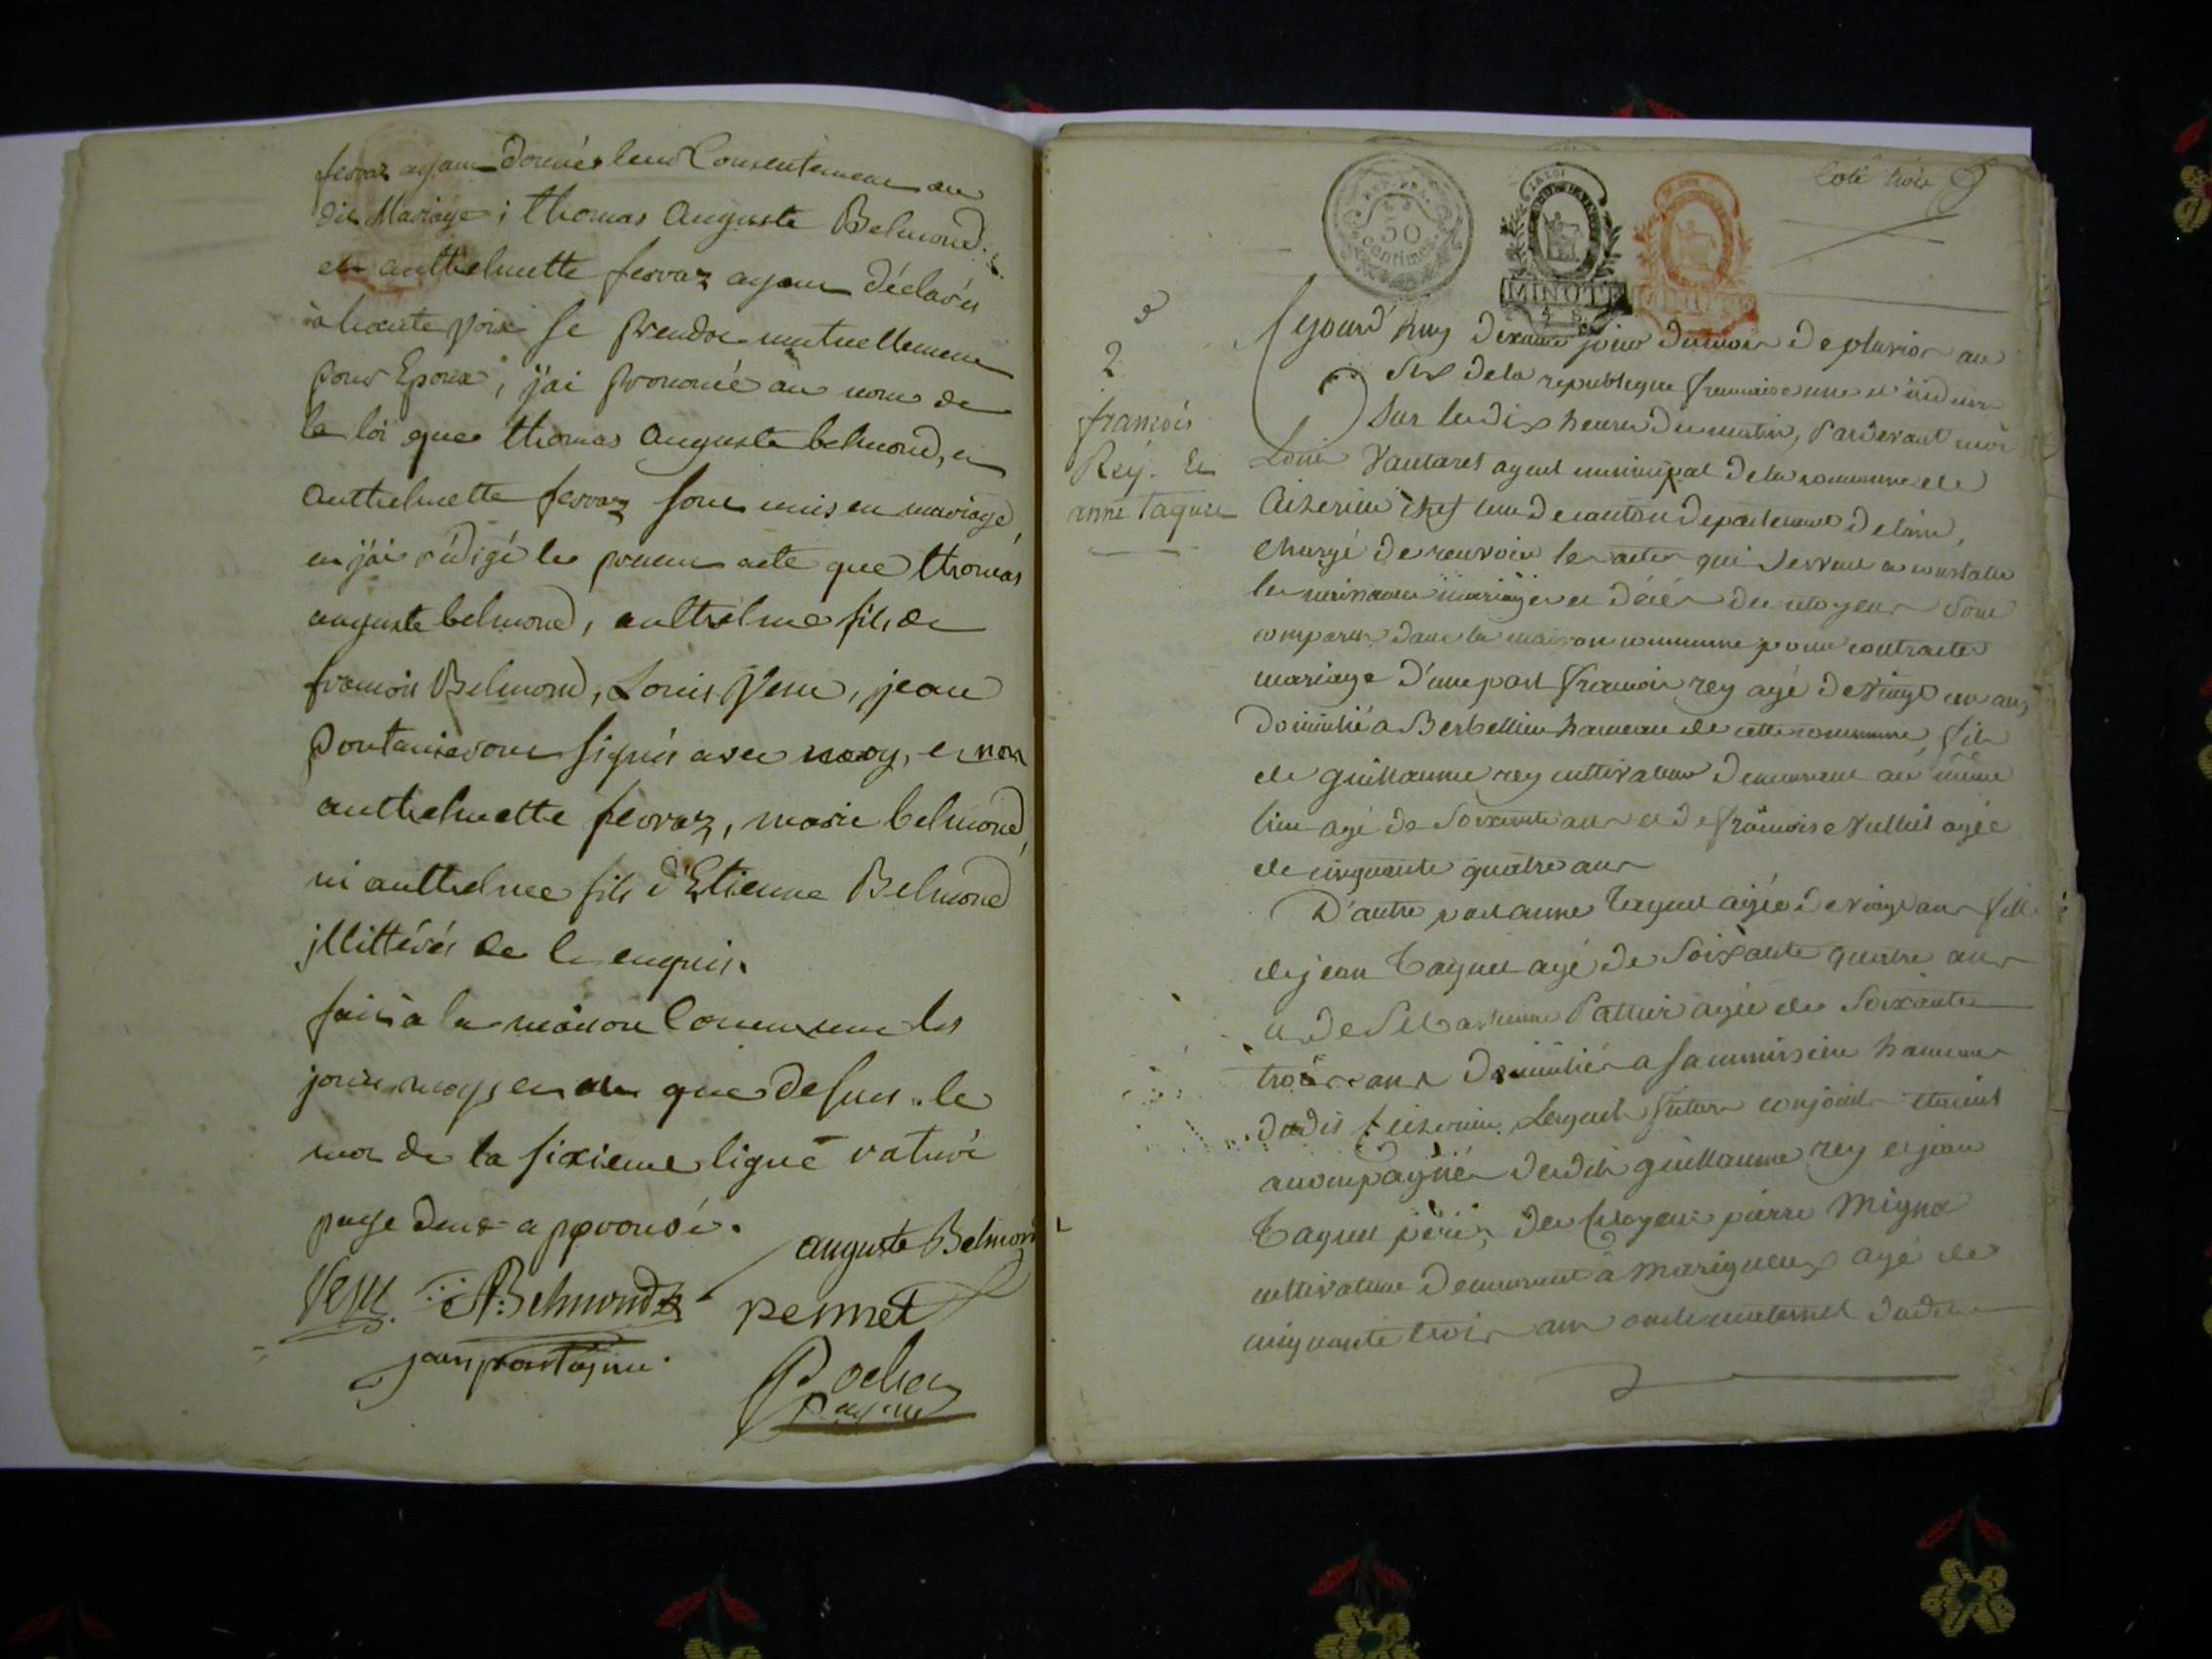 ferraz ayant donnés leur Consentement au
dit Mariage ; thomas Auguste Belmond
et anthelmette ferraz ayant déclarés
à haute voix se prendre mutuellement
pour Epoux, j'ai prononcé au nom de
la loi que thomas Auguste belmond, et
anthelmette ferraz sont unis en mariage
et j'ai rédigé le present acte que thomas
auguste belmond, anthelme fils de
francois Belmond, Louis Vesu, jean
pontanier ont signés avec moy, et non
anthelmette ferraz, marie belmond,
ni anthelme fils d'Etienne Belmond
jllittérés de ce enquis.
fait à la maison Commune les
jour moys et an que dessus. le
mot de la sixieme ligne raturé
page deux approuvé.
auguste Belmond
Vesu. A Belmond
permet
jean
REP. FRA.
50
Centimes.
LA LOI
MINUTE
MINUTE
Coté trois
2
francois
Rey. Et
anne taquet
Cejourd'huy dixieme jour du mois de pluviose an
six de la republique francaise une et indiv.
Sur les dix heures du matin, Pardevant moi
Louis Vautaret agent municipal de la commune de
Ceizerieu chef lieu de canton departement de lain,
Chargé de recevoir les actes qui servent a constater
les naissances mariages et décès des citoyens sont
comparus dans la maison commune pour contracter
mariage d'une part francois rey agé de vingt un ans
domicilié a Berbellieu hameau de cette commune, fils
de guillaume rey cultivateur demeurant au même
lieu agé de Soixante ans et de francoise Vulliet agée
de cinquante quatre ans
D'autre part anne taquet agée de vingt ans fille
de jean taquet agé de Soixante quatre ans
et de Sebastienne Pattier agée de Soixante
trois ans domiciliés a hameau
dudit Ceizerieu. Lesquels futurs conjoints etaient
accompagnés desdits guillaume rey et jean
taquet peres, des Citoyens pierre Mignot
cultivateur demeurant à marignieux agé de
cinquante trois ans oncle maternel dudit